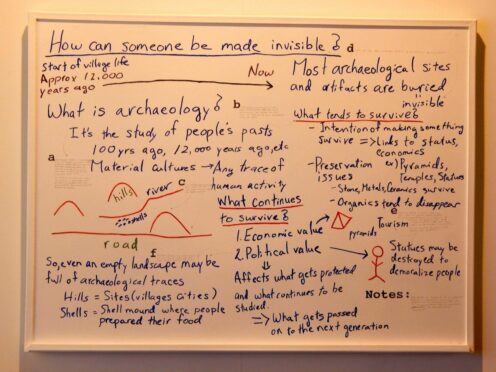 How can someone be made invisible?
d
Start of village life
Approx 12,000
years ago
Now
What is archaeology?
b
It's the study of people's pasts
100 yrs ago, 12,000 years ago, etc
a
Material cultures → Any trace of
human activity
hills
river
c
shells
road
f
So, even an empty landscape may be
full of archaeological traces
Hills = Sites (villages cities)
Shells = Shell mound where people
prepared their food
What continues
to survive?
1. Economic value
2. Political value
⇓
Affects what gets protected
and what continues to be
studied.
=> What gets passed
on to the next generation
Most archaeological sites
and artifacts are buried
invisible
What tends to survive?
- Intention of making something
survive => Links to status,
economics
- Preservation ex) Pyramids,
issues Temples, Statues
- Stone, Metals, Ceramics survive
- Organics tend to disappear
e
Tourism
pyramids
Statues may be
destroyed to
demoralize people
Notes: